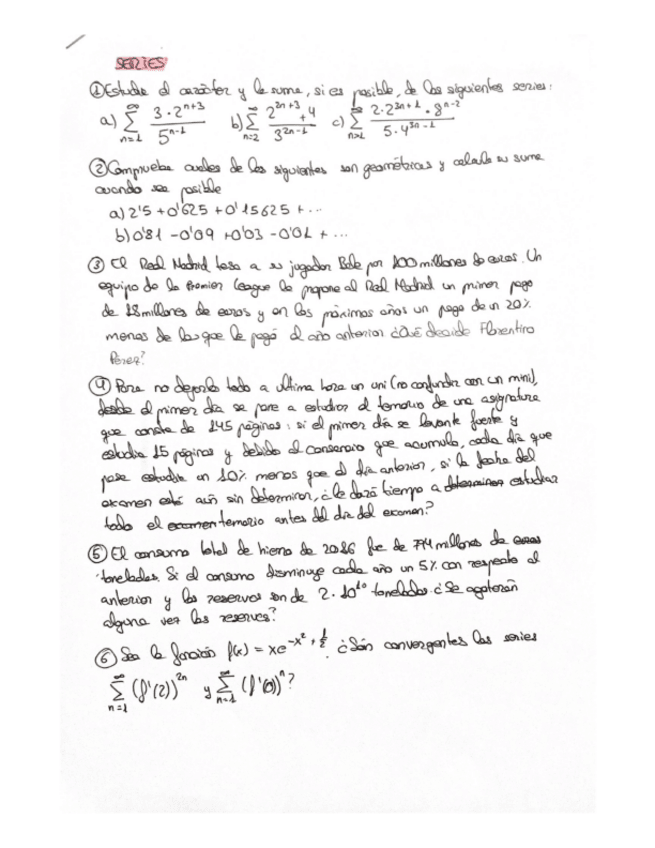 SERIES
① Estudie el carácter y la suma, si es posible, de las siguientes series:
a) ∞ Σ n=1 3·2^(n+3) / 5^(n-1) b) ∞ Σ n=2 2^(2n+3) + 4 / 3^(2n-1) c) ∞ Σ n=1 2·2^(3n+1)·8^(n-2) / 5·4^(3n-1)
② Comprueba cuales de las siguientes son geométricas y calcula su suma
cuando sea posible
a) 2'5 + 0'625 + 0'15625 + ...
b) 0'81 - 0'09 + 0'03 - 0'01 + ...
③ El Real Madrid tasa a su jugador Bale por 100 millones de euros. Un
equipo de la Premier League le propone al Real Madrid un primer pago
de 18 millones de euros y en los próximos años un pago de un 20%
menos de lo que le pagó el año anterior ¿Qué decide Florentino
Pérez?
④ Para no dejarlo todo a ultima hora un uni (no confundir con un mini),
desde el primer día se pone a estudiar el temario de una asignatura
que consta de 145 páginas: si el primer día se levanta fuerte y
estudia 15 páginas y debido al cansancio que acumula, cada día que
pasa estudia un 10% menos que el día anterior, si la fecha del
examen está aún sin determinar, ¿le dará tiempo a determinar estudiar
todo el examen temario antes del día del examen?
⑤ El consumo total de hierro de 2016 fue de 794 millones de
toneladas. Si el consumo disminuye cada año un 5% con respecto al
anterior y las reservas son de 2·10^10 toneladas ¿Se agotarán
alguna vez las reservas?
⑥ Sea la función f(x) = xe^(-x²+1/2). ¿Són convergentes las series
∞ Σ n=1 (f'(2))^(2n) y ∞ Σ n=1 (f'(0))^n?